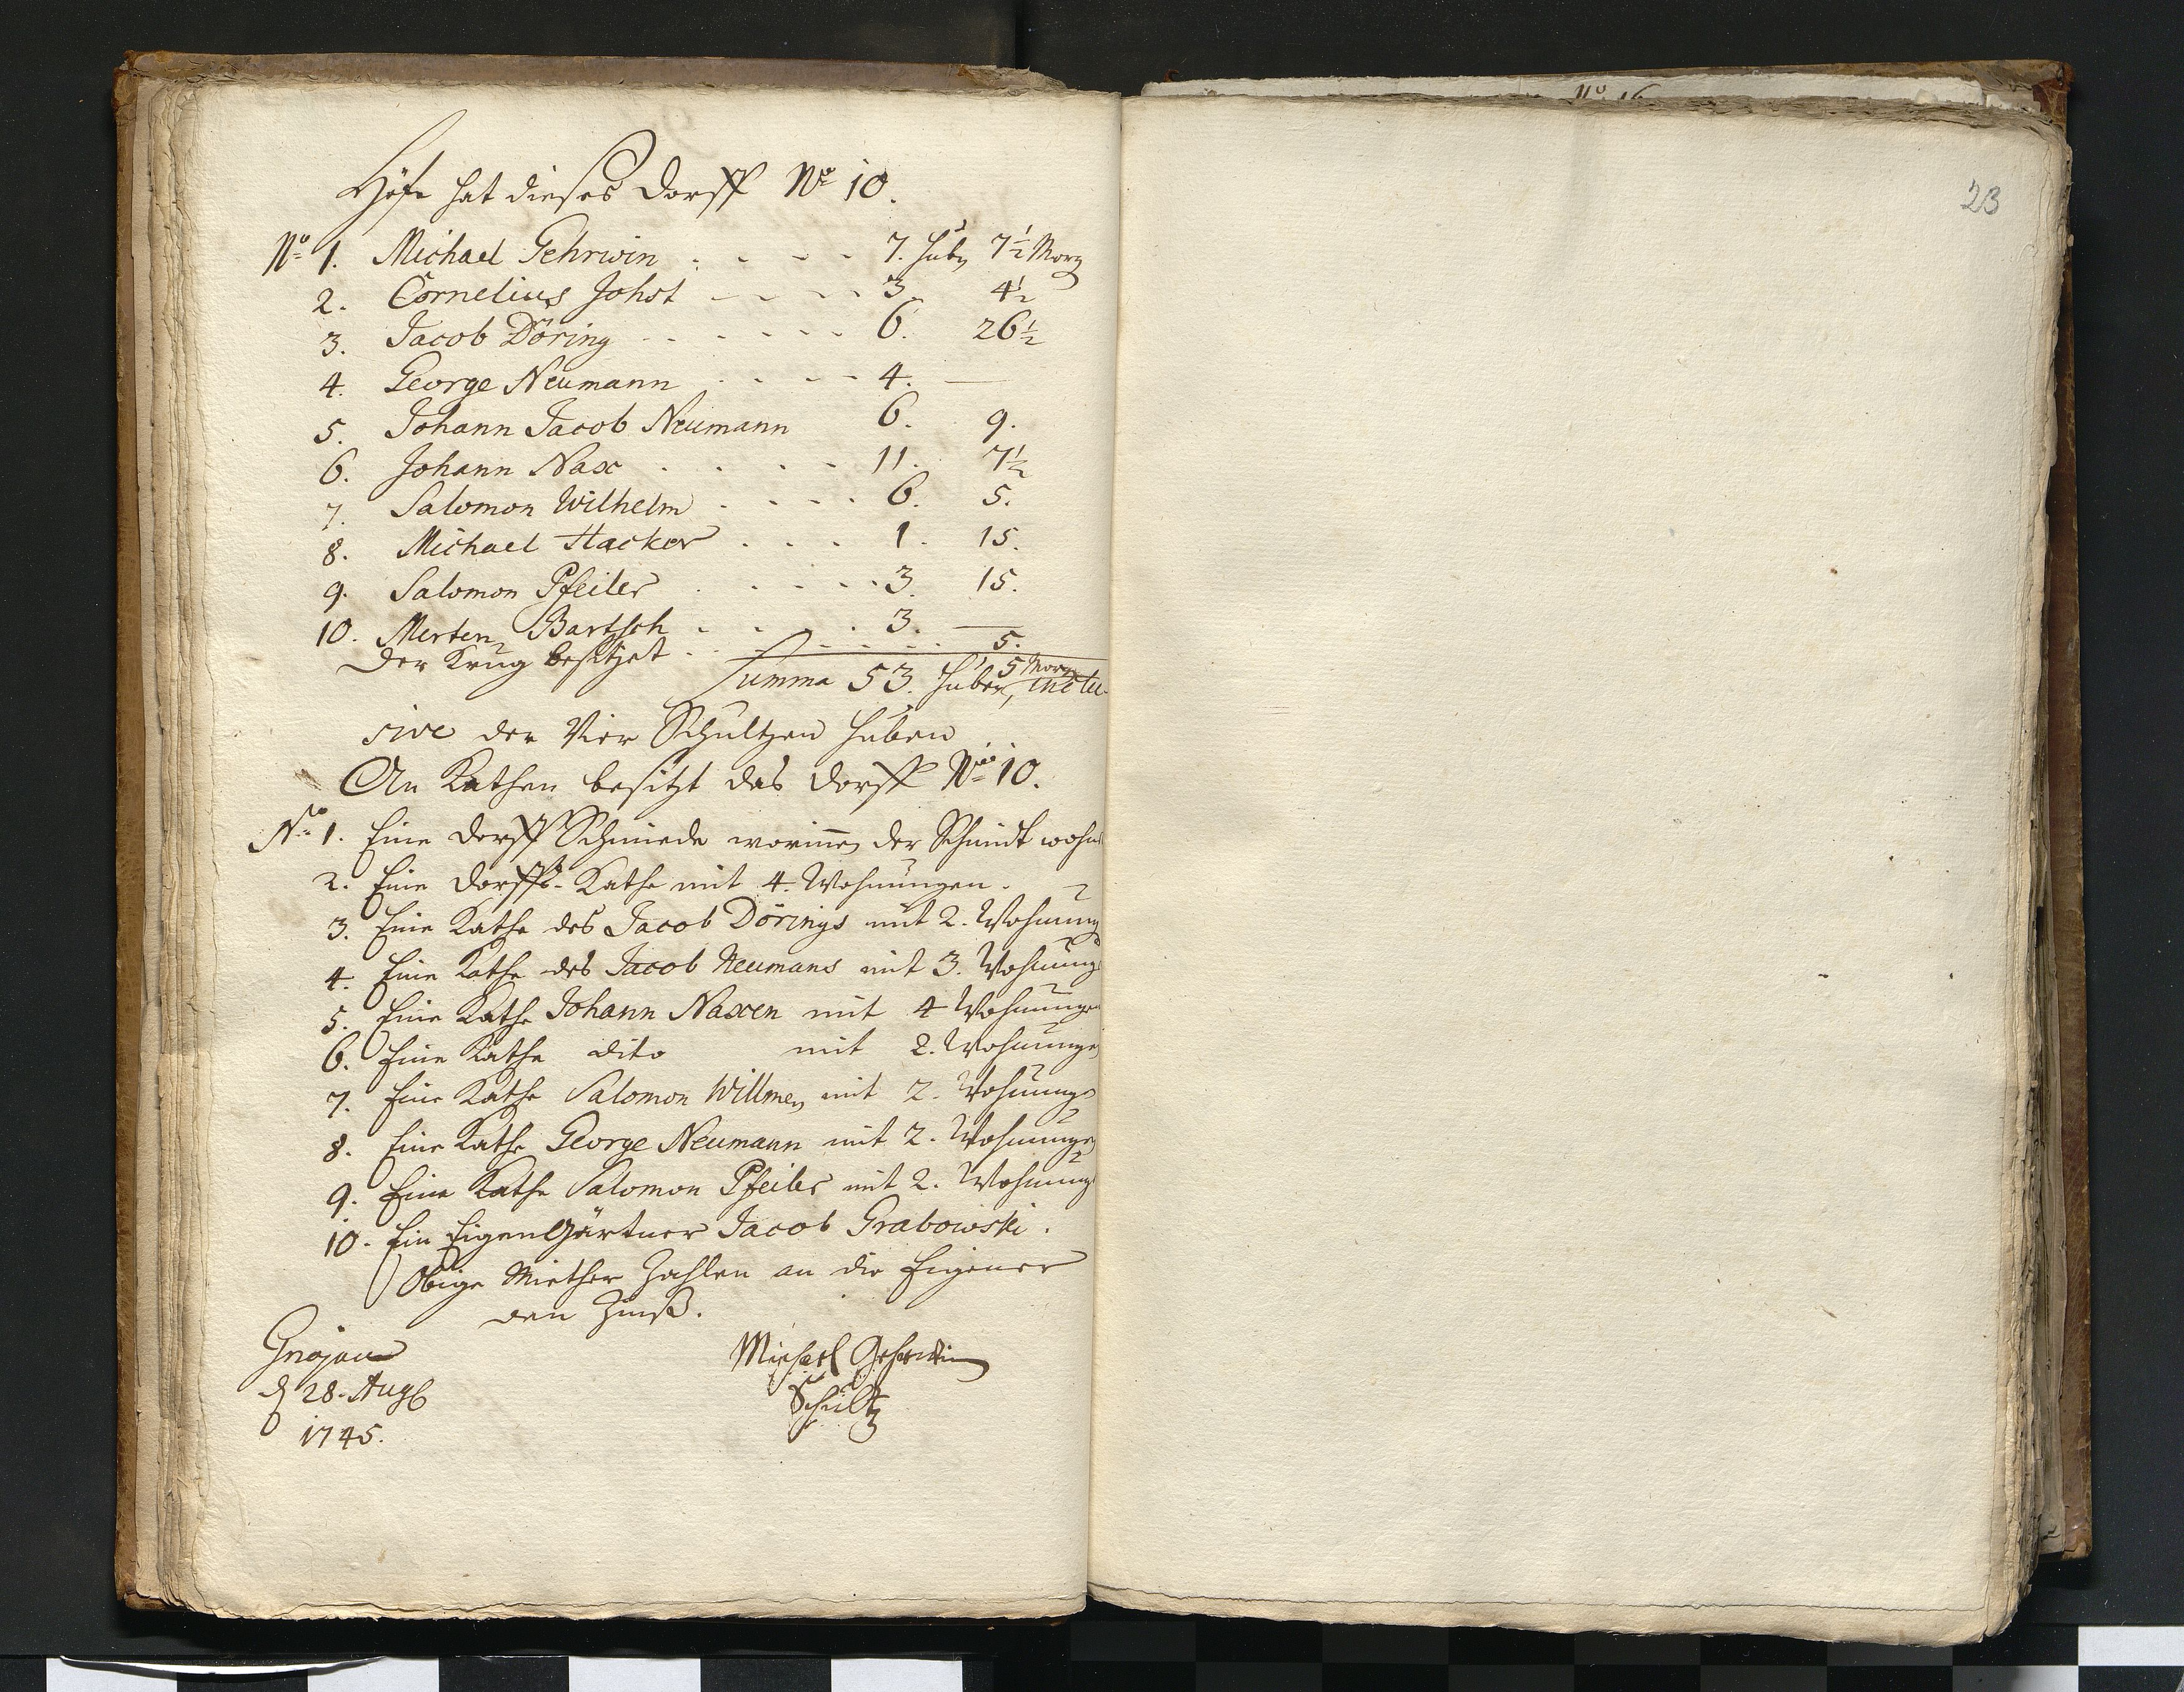 Höfe hat dieses Dorff No 10.
No 1. Michael Gehrwin . - - - 7. Hub 7½ Morg
2. Cornelius Johst - - - - 3 4½
3. Jacob Döring - - - - - - 6. 26½
4. George Neumann . - - - 4. —
5. Johann Jacob Neumann 6. 9.
6. Johann Nax . . . - 11. 7½
7. Salomon Wilhelm . - - . 6. 5.
8. Michael Hacker . . . 1. 15.
9. Salomon Pfeiler . . - - . 3. 15.
10. Merten Bartsch - - . . 3. —
Der Krug besitzet . . . . . . . 5.
Summa 53. Huben, 5 Morg inclu-
sive der Vier Schultzen Huben
An Kathen besitzt das Dorff No 10.
No 1. Eine Dorff Schmiede worinnen der Schmidt wohn
2. Eine Dorffs-Kathe mit 4. Wohnungen.
3. Eine Kathe des Jacob Dörings mit 2. Wohnung
4. Eine Kathe des Jacob Neumans mit 3. Wohnung
5. Eine Kathe Johann Naxen mit 4 Wohnungen
6. Eine Kathe dito mit 2. Wohnungen
7. Eine Kathe Salomon Willmen mit 2. Wohnung
8. Eine Kathe George Neumann mit 2. Wohnungen
9. Eine Kathe Salomon Pfeiler mit 2. Wohnung
10. Ein Eigen Gärtner Jacob Grabowski.
Obige Miether Zahlen an die Eigener
den Zinß.
Gnojau
d 28. Aug
1745.
Michael Gehrwin
Schultz
23